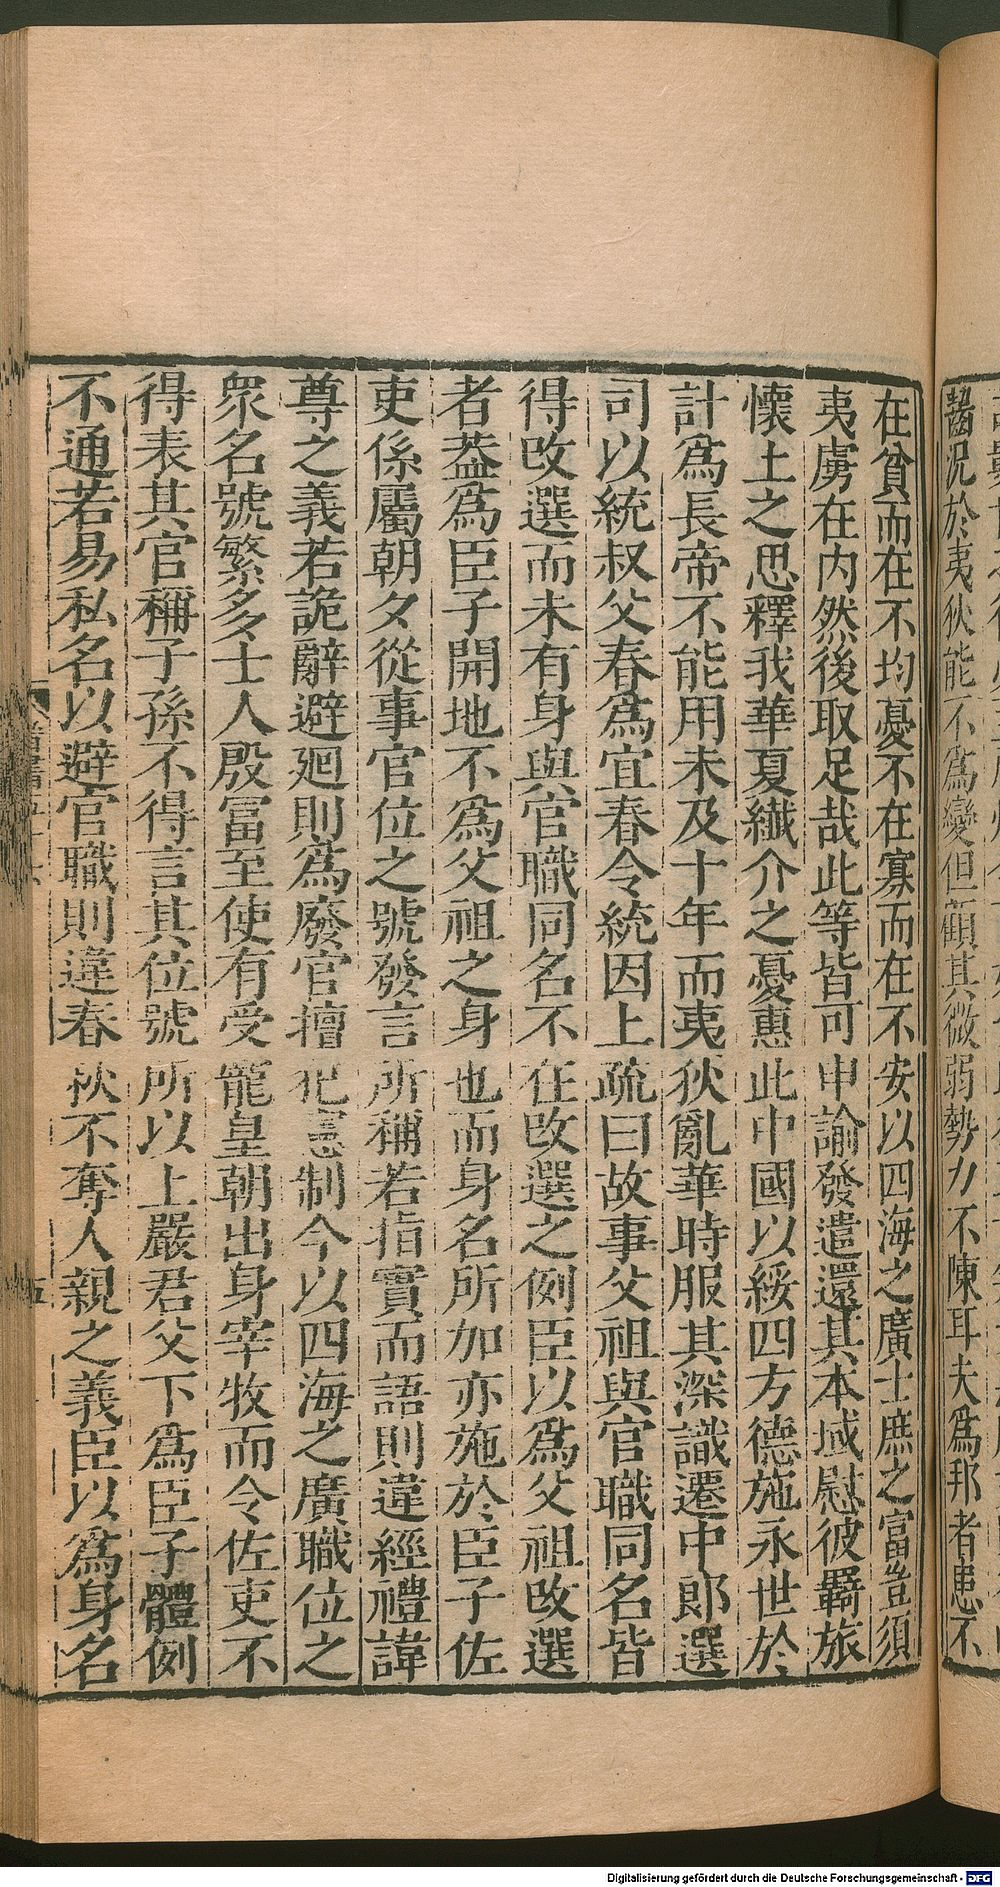 醫況於夷狄能不爲變但顧其微弱勢力不陳耳夫爲邦者患不
在貧而在不均憂不在寡而在不安以四海之廣士庶之富豈須
夷虜在内然後取足哉此等皆可申諭發遣還其本域慰彼羇旅
懷土之思釋我華夏纎介之憂惠此中國以綏四方德施永世於
計爲長帝不能用未及十年而夷狄亂華時服其深識遷中郎選
司以統叔父春爲宜春令統因上疏曰故事父祖與官職同名皆
得改選而未有身與官職同名不在改選之例臣以爲父祖改選
者葢爲臣子開地不爲父祖之身也而身名所加亦施於臣子佐
吏係屬朝夕從事官位之號發言所稱若指實而語則違經禮諱
尊之義若詭辭避廻則爲廢官擅犯憲制今以四海之廣職位之
衆名號繁多士人殷富至使有受寵皇朝出身宰牧而令佐吏不
得表其官稱子孫不得言其位號所以上嚴君父下爲臣子體例
不通若易私名以避官職則違春秋不奪人親之義臣以爲身名
五
Digitalisierung gefördert durch die Deutsche Forschungsgemeinschaft - DFG